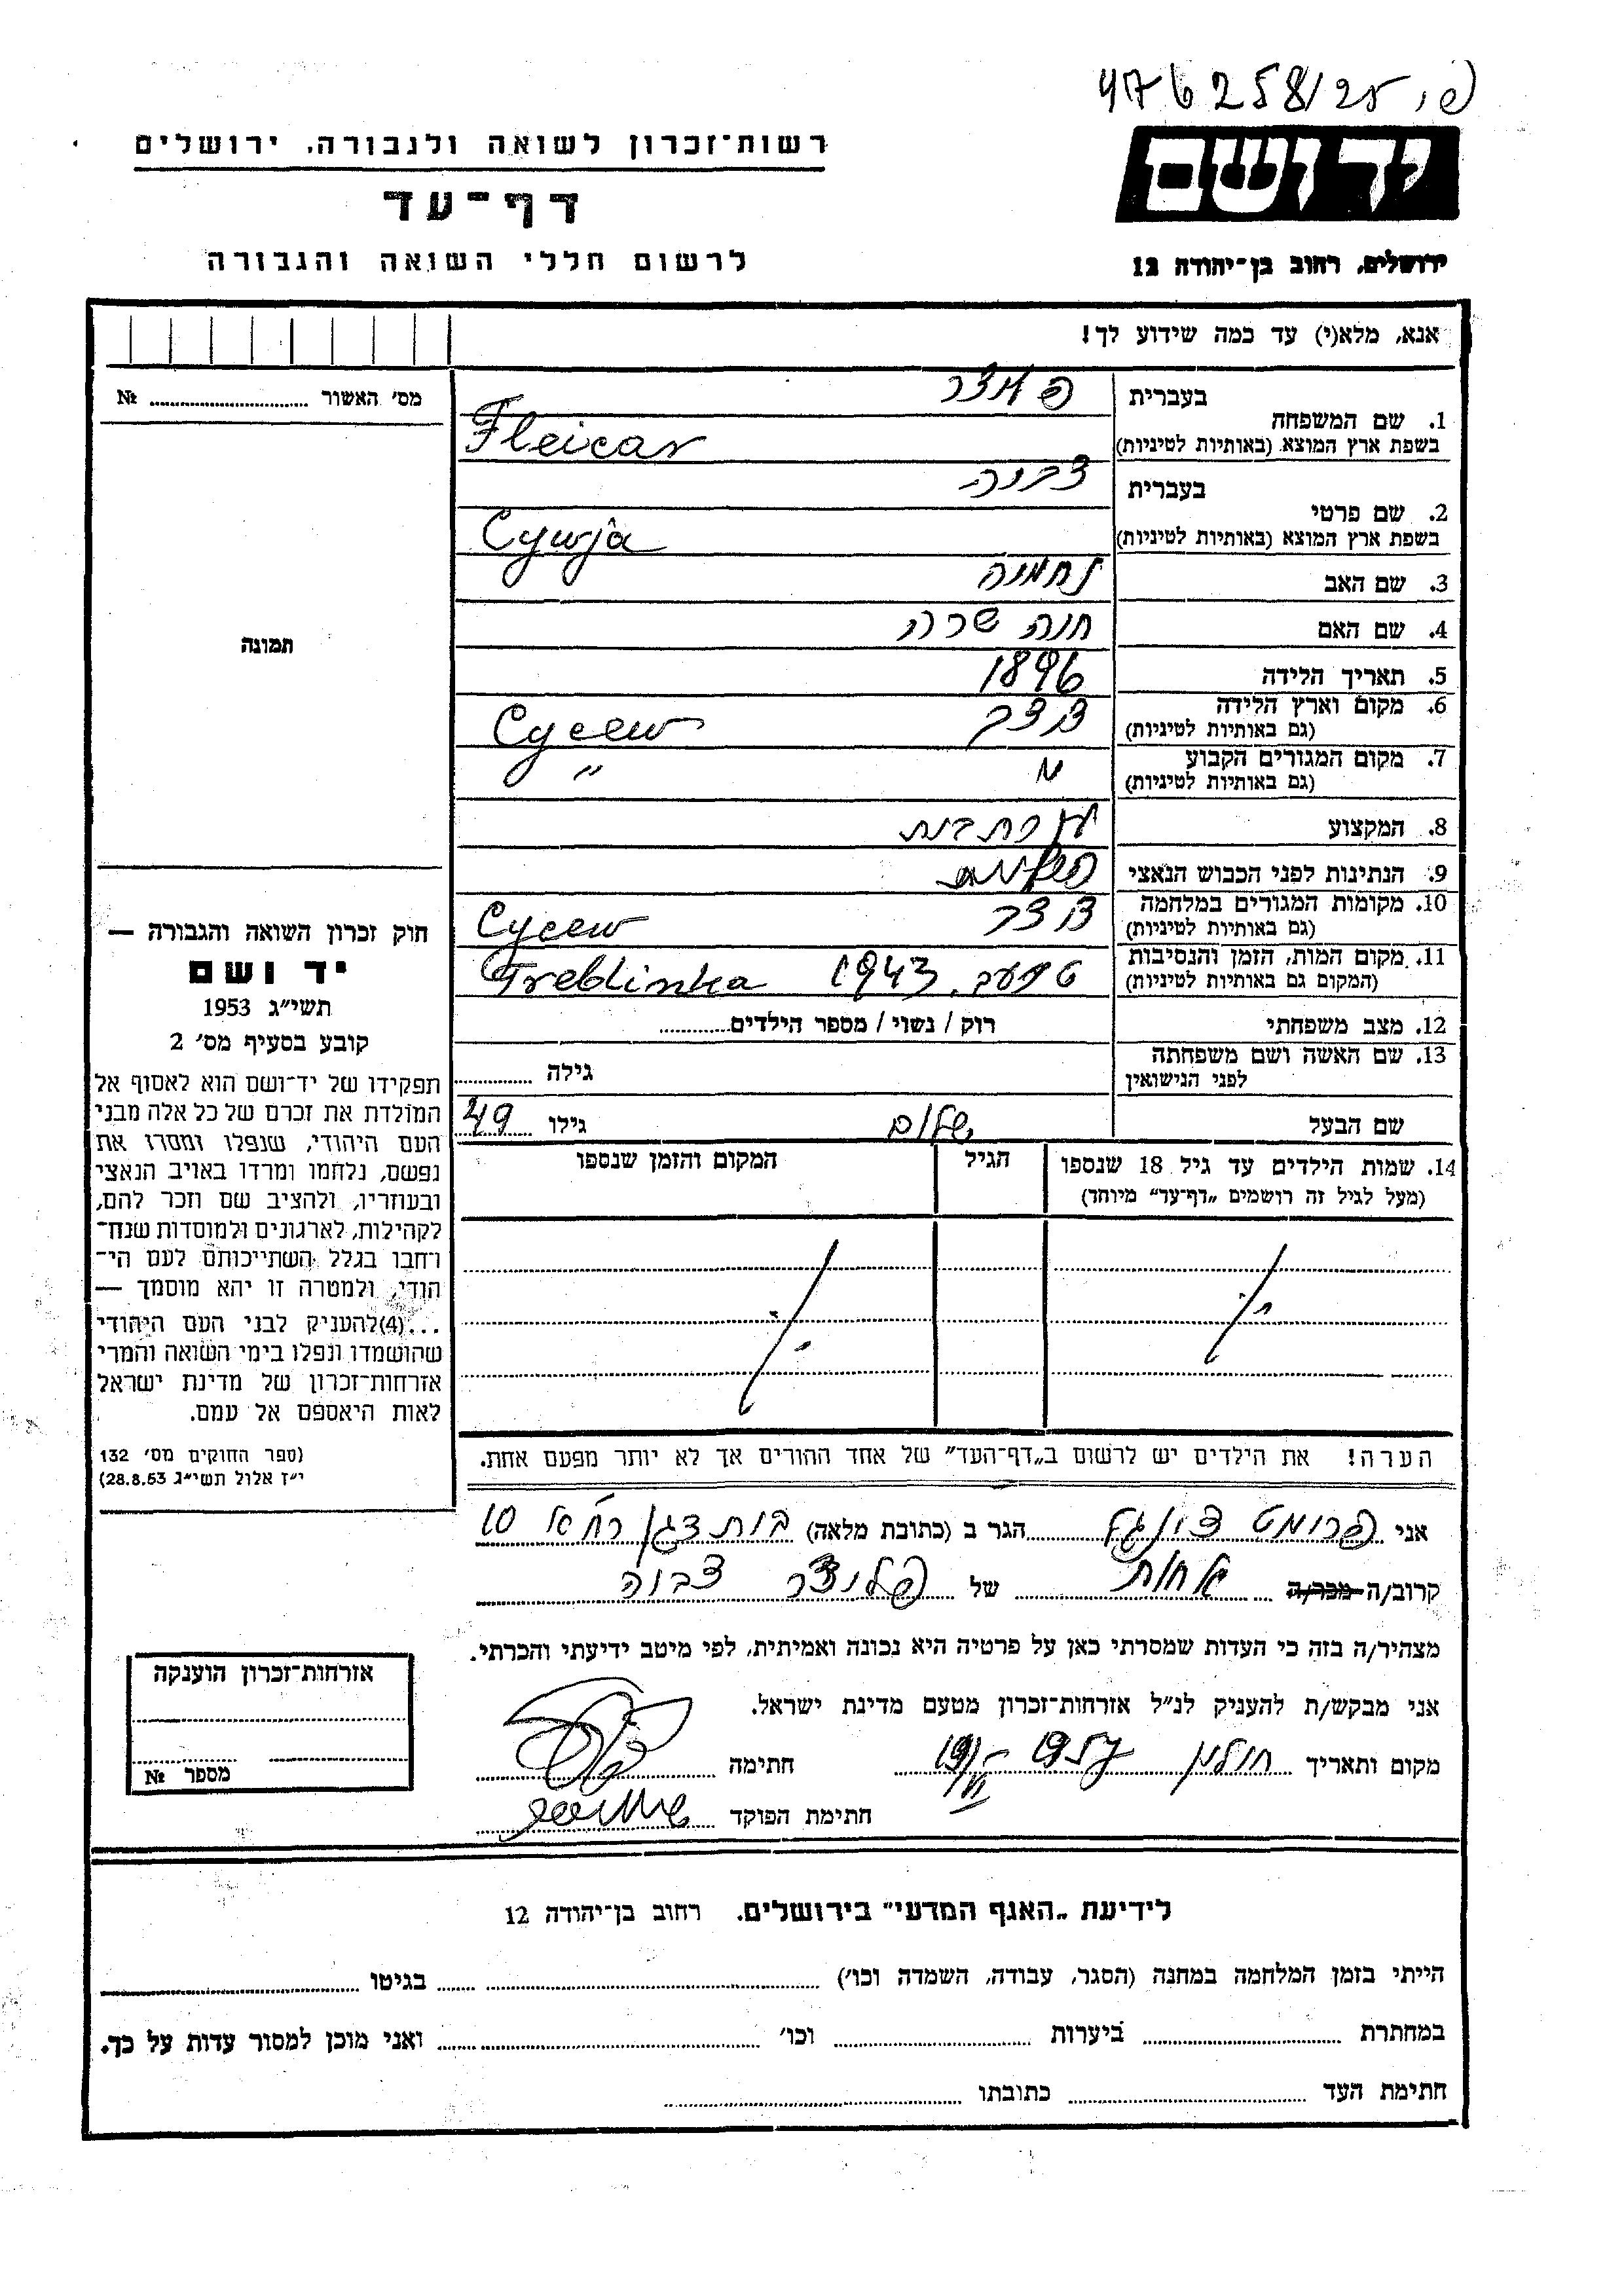 476258/25
יד ושם
רשות־זכרון לשואה ולגבורה, ירושלים
דף־עד
לרשום חללי השואה והגבורה
ירושלים, רחוב בן־יהודה 12
אנא, מלא(י) עד כמה שידוע לך!
מס׳ האשור № 
1. שם המשפחה בעברית
בשפת ארץ המוצא (באותיות לטיניות) Fleicar
2. שם פרטי בעברית
בשפת ארץ המוצא (באותיות לטיניות) Cywja
3. שם האב נחמיה
4. שם האם חנה שרה
5. תאריך הלידה 1896
6. מקום וארץ הלידה (גם באותיות לטיניות) Cycew
7. מקום המגורים הקבוע (גם באותיות לטיניות) "
8. המקצוע עקרת בית
9. הנתינות לפני הכבוש הנאצי
10. מקומות המגורים במלחמה (גם באותיות לטיניות) Cycew
11. מקום המות, הזמן והנסיבות (המקום גם באותיות לטיניות) 1943 Treblinka
12. מצב משפחתי רוק / נשוי / מספר הילדים
13. שם האשה ושם משפחתה לפני הנישואין גילה
שם הבעל שלום גילו 49
14. שמות הילדים עד גיל 18 שנספו הגיל המקום והזמן שנספו
(מעל לגיל זה רושמים „דף־עד״ מיוחד)
תמונה
חוק זכרון השואה והגבורה —
יד ושם
תשי״ג 1953
קובע בסעיף מס׳ 2
תפקידו של יד־ושם הוא לאסוף אל
המולדת את זכרם של כל אלה מבני
העם היהודי, שנפלו ומסרו את
נפשם, נלחמו ומרדו באויב הנאצי
ובעוזריו, ולהציב שם וזכר להם,
לקהילות, לארגונים ולמוסדות שנח־
רחבו בגלל השתייכותם לעם הי־
הודי, ולמטרה זו יהא מוסמך —
...(4)להעניק לבני העם היהודי
שהושמדו ונפלו בימי השואה והמרי
אזרחות־זכרון של מדינת ישראל
לאות היאספם אל עמם.
(ספר החוקים מס׳ 132
י״ז אלול תשי״ג 28.8.53)
הערה! את הילדים יש לרשום ב„דף־העד״ של אחד ההורים אך לא יותר מפעם אחת.
אני הגר ב (כתובת מלאה) בית דגן 10
קרוב/ה מכר/ה אחות של פליצר צביה
מצהיר/ה בזה כי העדות שמסרתי כאן על פרטיה היא נכונה ואמיתית, לפי מיטב ידיעתי והכרתי.
אני מבקש/ת להעניק לנ״ל אזרחות־זכרון מטעם מדינת ישראל.
מקום ותאריך חולון חתימה
חתימת הפוקד
אזרחות־זכרון הוענקה
מספר №
לידיעת „האגף המדעי״ בירושלים, רחוב בן־יהודה 12
הייתי בזמן המלחמה במחנה (הסגר, עבודה, השמדה וכו׳) בגיטו
במחתרת ביערות וכו׳ ואני מוכן למסור עדות על כך.
חתימת העד כתובתו